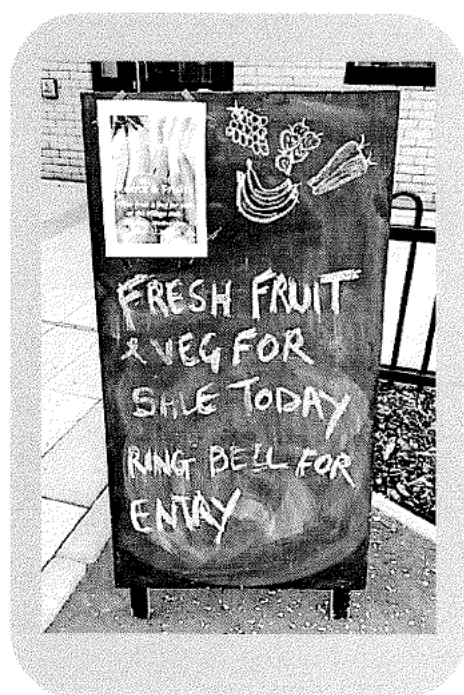 FRESH FRUIT
& VEG FOR
SALE TODAY
RING BELL FOR
ENTAY